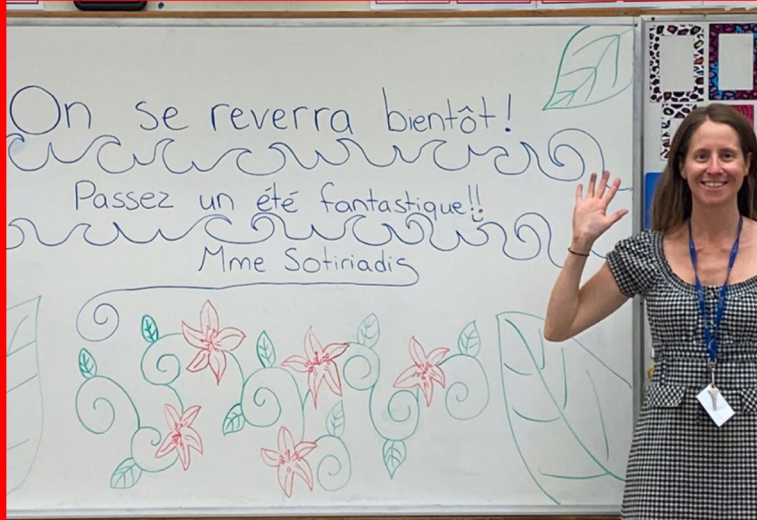 On se reverra bientôt!
Passez un été fantastique!!
Mme Sotiriadis